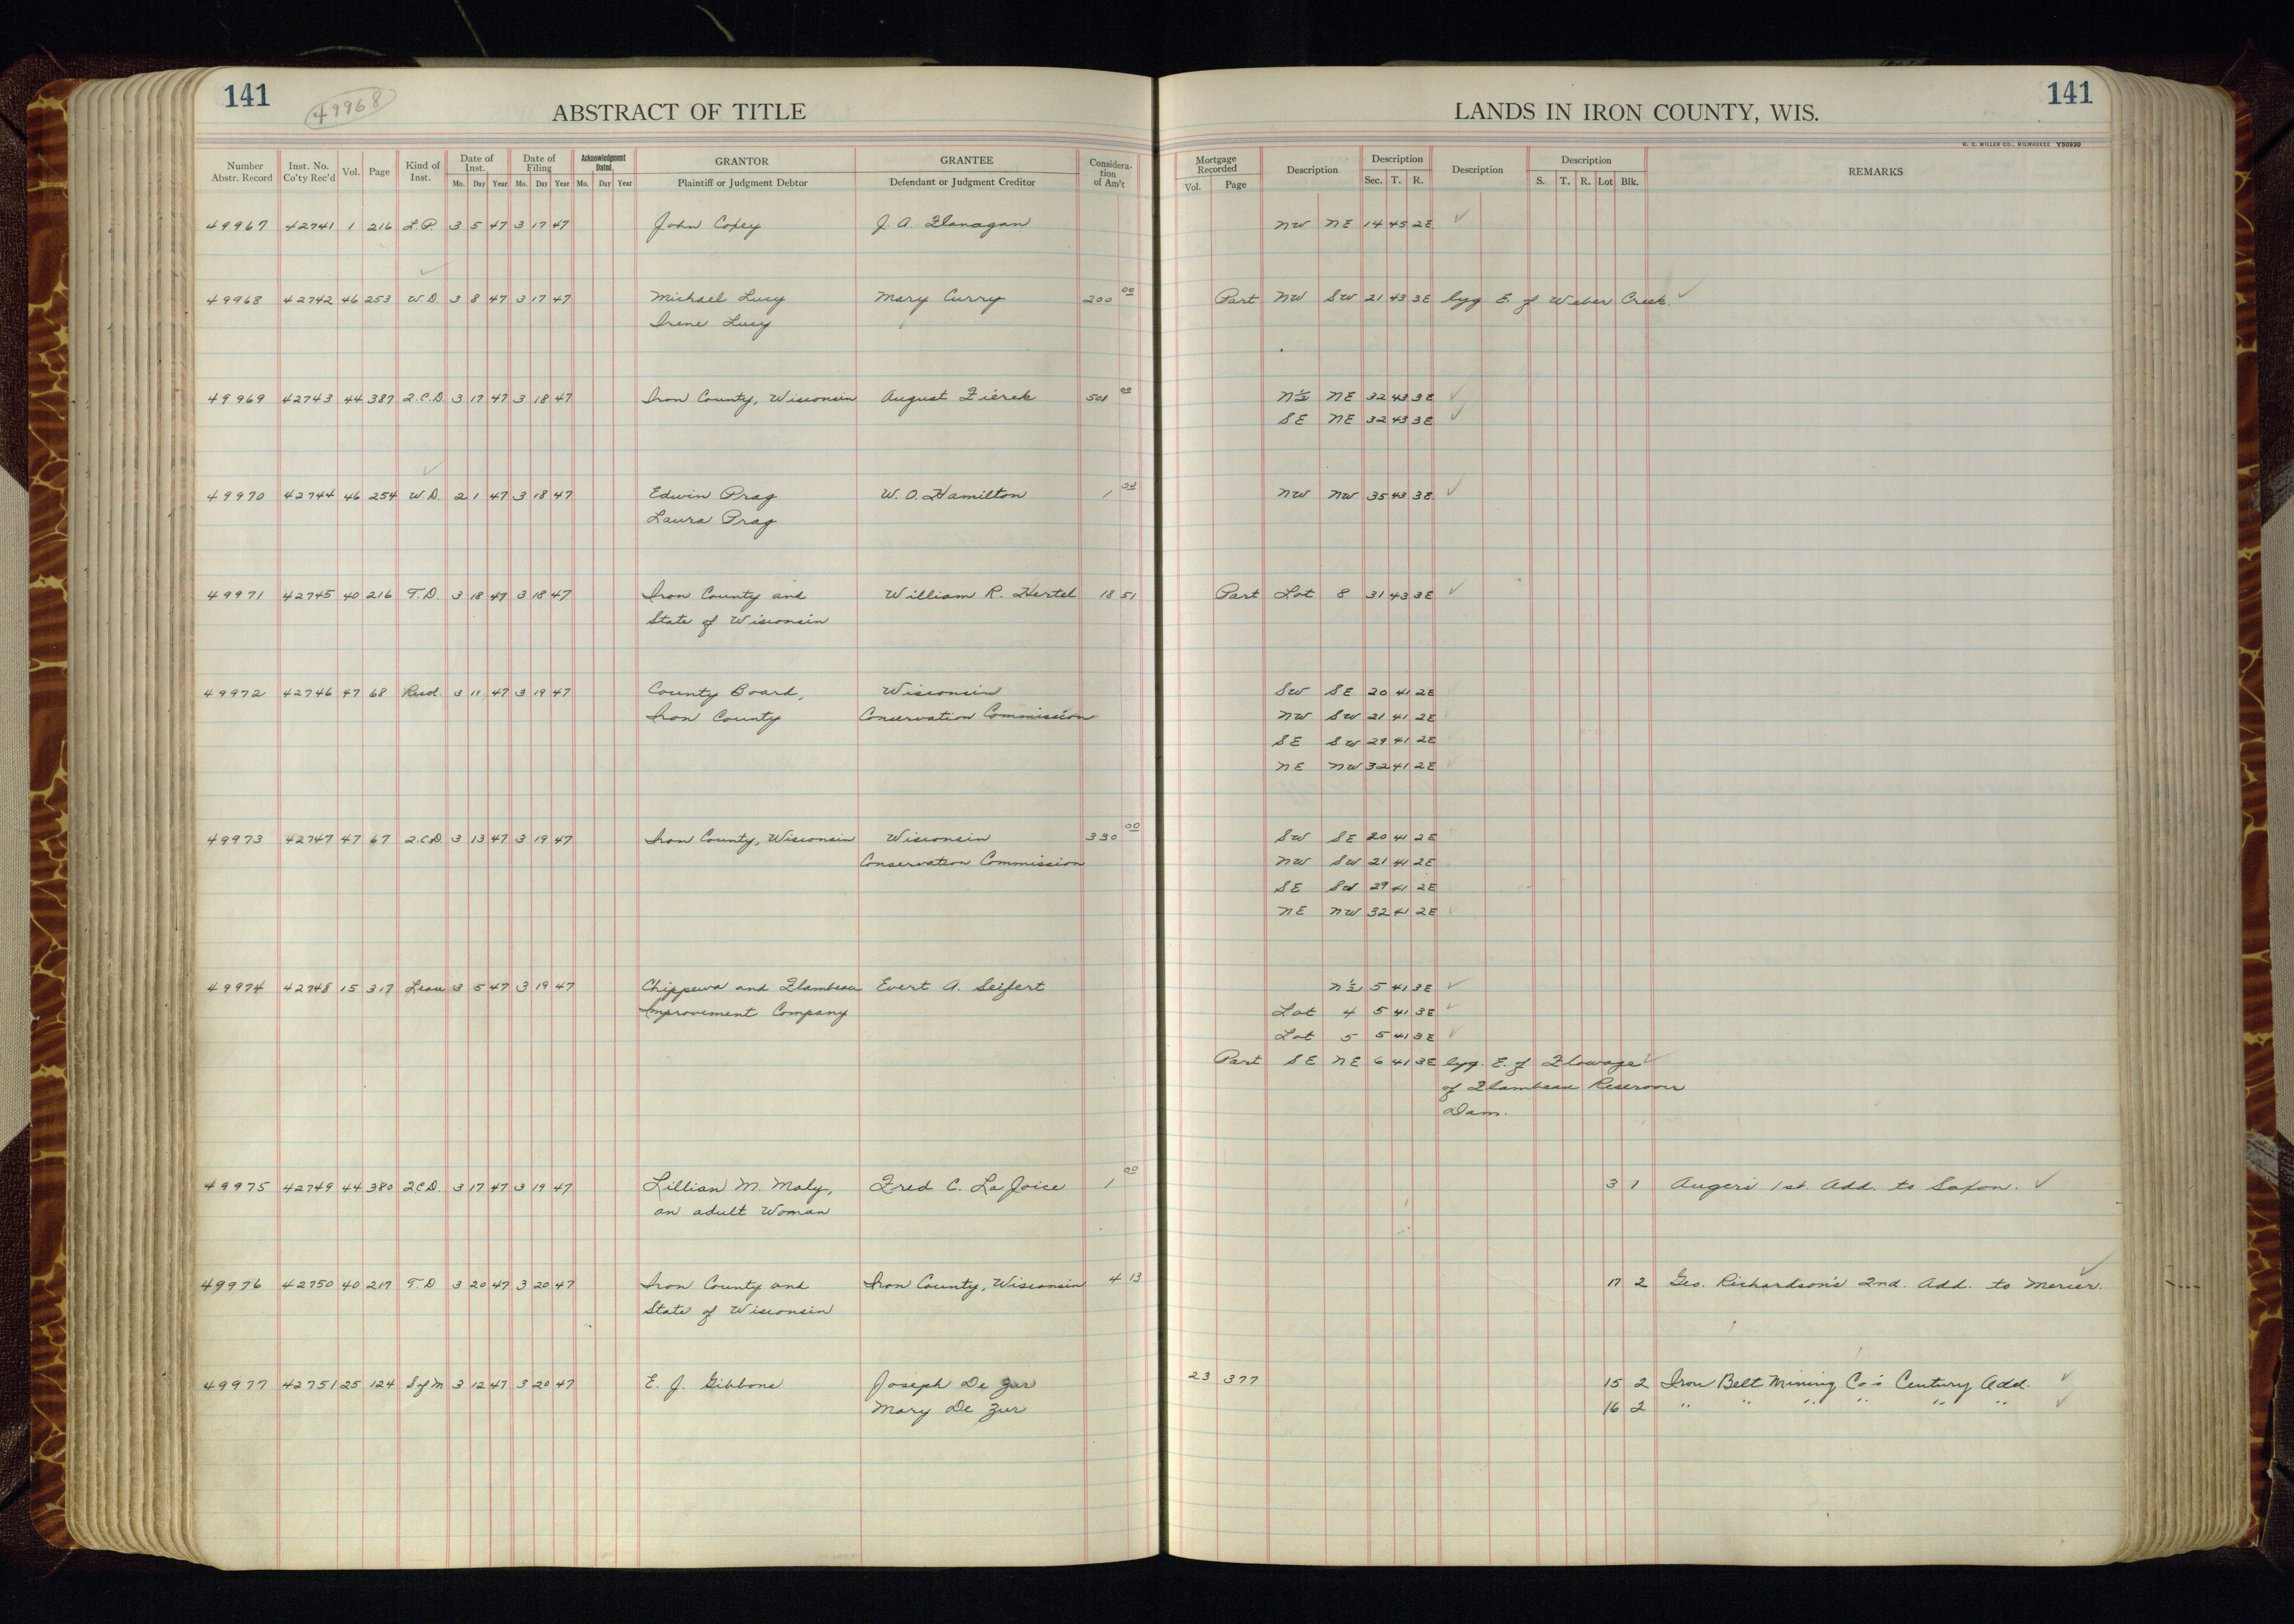 141
49968
ABSTRACT OF TITLE
LANDS IN IRON COUNTY, WIS.
141
H. C. MILLER CO., MILWAUKEE Y50930
Number Abstr. Record Inst. No. Co'ty Rec'd Vol. Page Kind of Inst. Date of Inst. Mo. Day Year Date of Filing Mo. Day Year Acknowledgment Dated Mo. Day Year GRANTOR Plaintiff or Judgment Debtor GRANTEE Defendant or Judgment Creditor Considera-tion of Am't Mortgage Recorded Vol. Page Description Description Sec. T. R. Description Description S. T. R. Lot Blk. REMARKS
49967 42741 1 216 L.P. 3 5 47 3 17 47 John Coxey J. A. Flanagan NW NE 14 45 2E
49968 42742 46 253 W.D. 3 8 47 3 17 47 Michael Lucy Mary Curry 200 00 Part NW SW 21 43 3E lyg. E. of Weber Creek.
Irene Lucy
49969 42743 44 387 2.C.D. 3 17 47 3 18 47 Iron County, Wisconsin August Zierek 501 00 N½ NE 32 43 3E
SE NE 32 43 3E
49970 42744 46 254 W.D. 2 1 47 3 18 47 Edwin Prag W. O. Hamilton 1 00 NW NW 35 43 3E
Laura Prag
49971 42745 40 216 T.D. 3 18 47 3 18 47 Iron County and William R. Hertel 18 51 Part Lot 8 31 43 3E
State of Wisconsin
49972 42746 47 68 Resol. 3 11 47 3 19 47 County Board, Wisconsin SW SE 20 41 2E
Iron County Conservation Commission NW SW 21 41 2E
SE SW 29 41 2E
NE NW 32 41 2E
49973 42747 47 67 2.C.D. 3 13 47 3 19 47 Iron County, Wisconsin Wisconsin 330 00 SW SE 20 41 2E
Conservation Commission NW SW 21 41 2E
SE SW 29 41 2E
NE NW 32 41 2E
49974 42748 15 317 Lease 3 5 47 3 19 47 Chippewa and Flambeau Evert A. Seifert N½ 5 41 3E
Improvement Company Lot 4 5 41 3E
Lot 5 5 41 3E
Part SE NE 6 41 3E lyg. E. of Flowage
of Flambeau Reservoir
Dam.
49975 42749 44 380 2CD. 3 17 47 3 19 47 Lillian M. Maly, Fred C. LaJoice 1 00 3 1 Auger's 1st. Add. to Saxon.
an adult Woman
49976 42750 40 217 T.D 3 20 47 3 20 47 Iron County and Iron County, Wisconsin 4 13 17 2 Geo. Richardson's 2nd. Add. to Mercer.
State of Wisconsin
49977 42751 25 124 S of M 3 12 47 3 20 47 E. J. Gibbons Joseph De Zur 23 377 15 2 Iron Belt Mining Co's Century Add.
Mary De Zur 16 2 " " " " " "